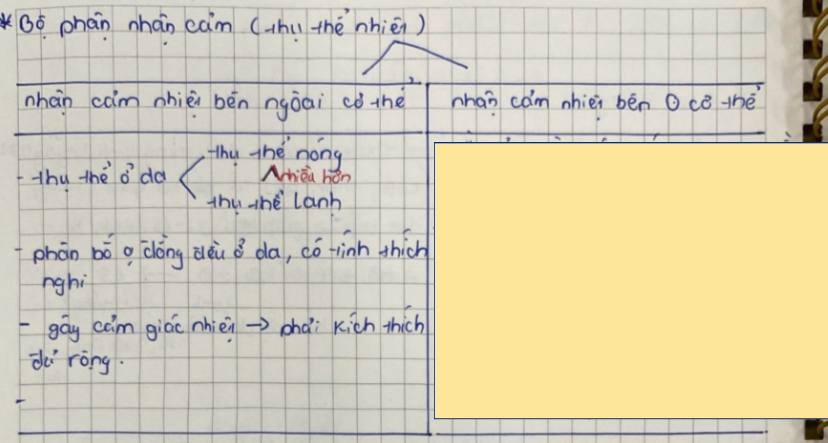 * Bộ phận nhận cảm (thụ thể nhiệt)
nhận cảm nhiệt bên ngoài cơ thể
nhận cảm nhiệt bên cơ thể
thụ thể nóng
- thụ thể ở da
nhiều hơn
thụ thể lạnh
- phân bố đồng đều ở da, có tính thích
nghi
- gây cảm giác nhiệt → phải kích thích
đủ rộng.
-